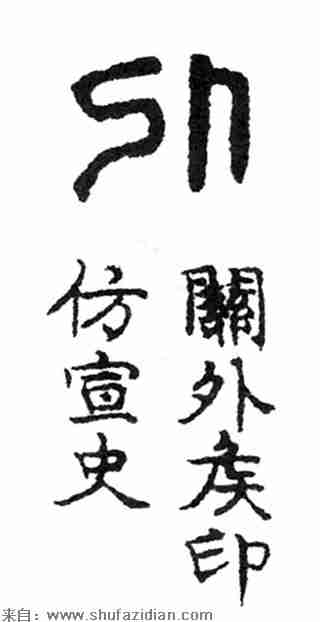 關外矦印
仿宣史
来自：www.shufazidian.com